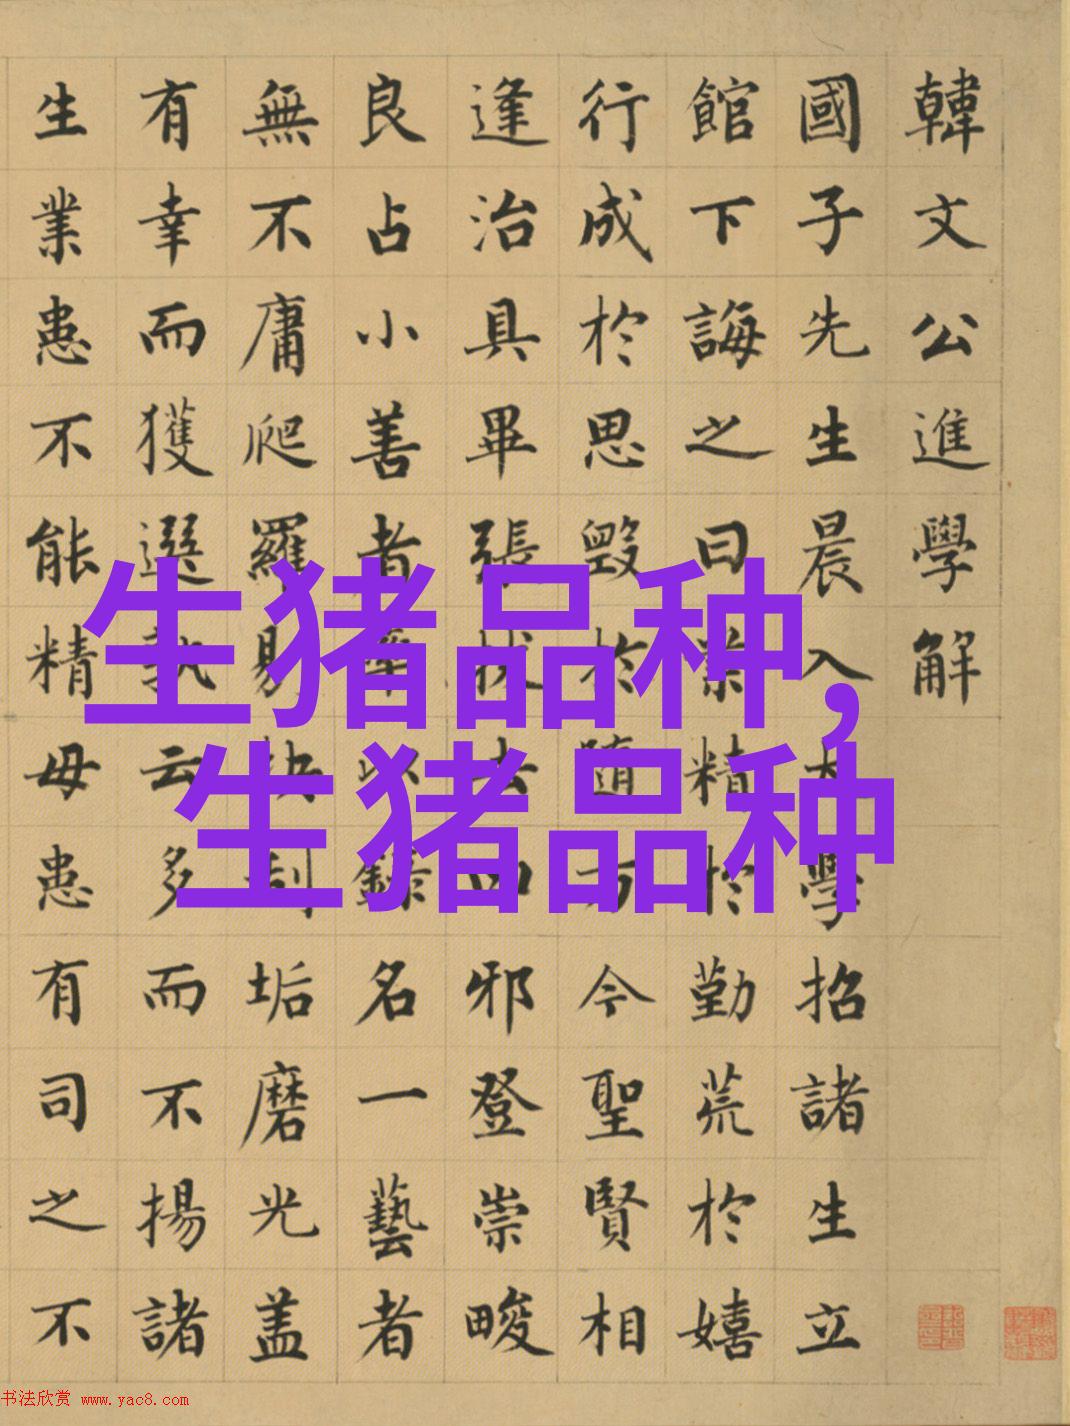 韓文公進學解
國子先生晨入太學招諸生立
館下誨之曰業精於勤荒於嬉
行成於思毀於随方今聖賢相
逢治具畢張拔去凶邪登崇畯
良占小善者率以錄名一藝者
無不庸爬羅剔抉刮垢磨光盖
有幸而獲選孰云多而不揚諸
生業患不能精毋患有司之不
生猪品种，
生猪品种
书法欣赏 www.yac8.com